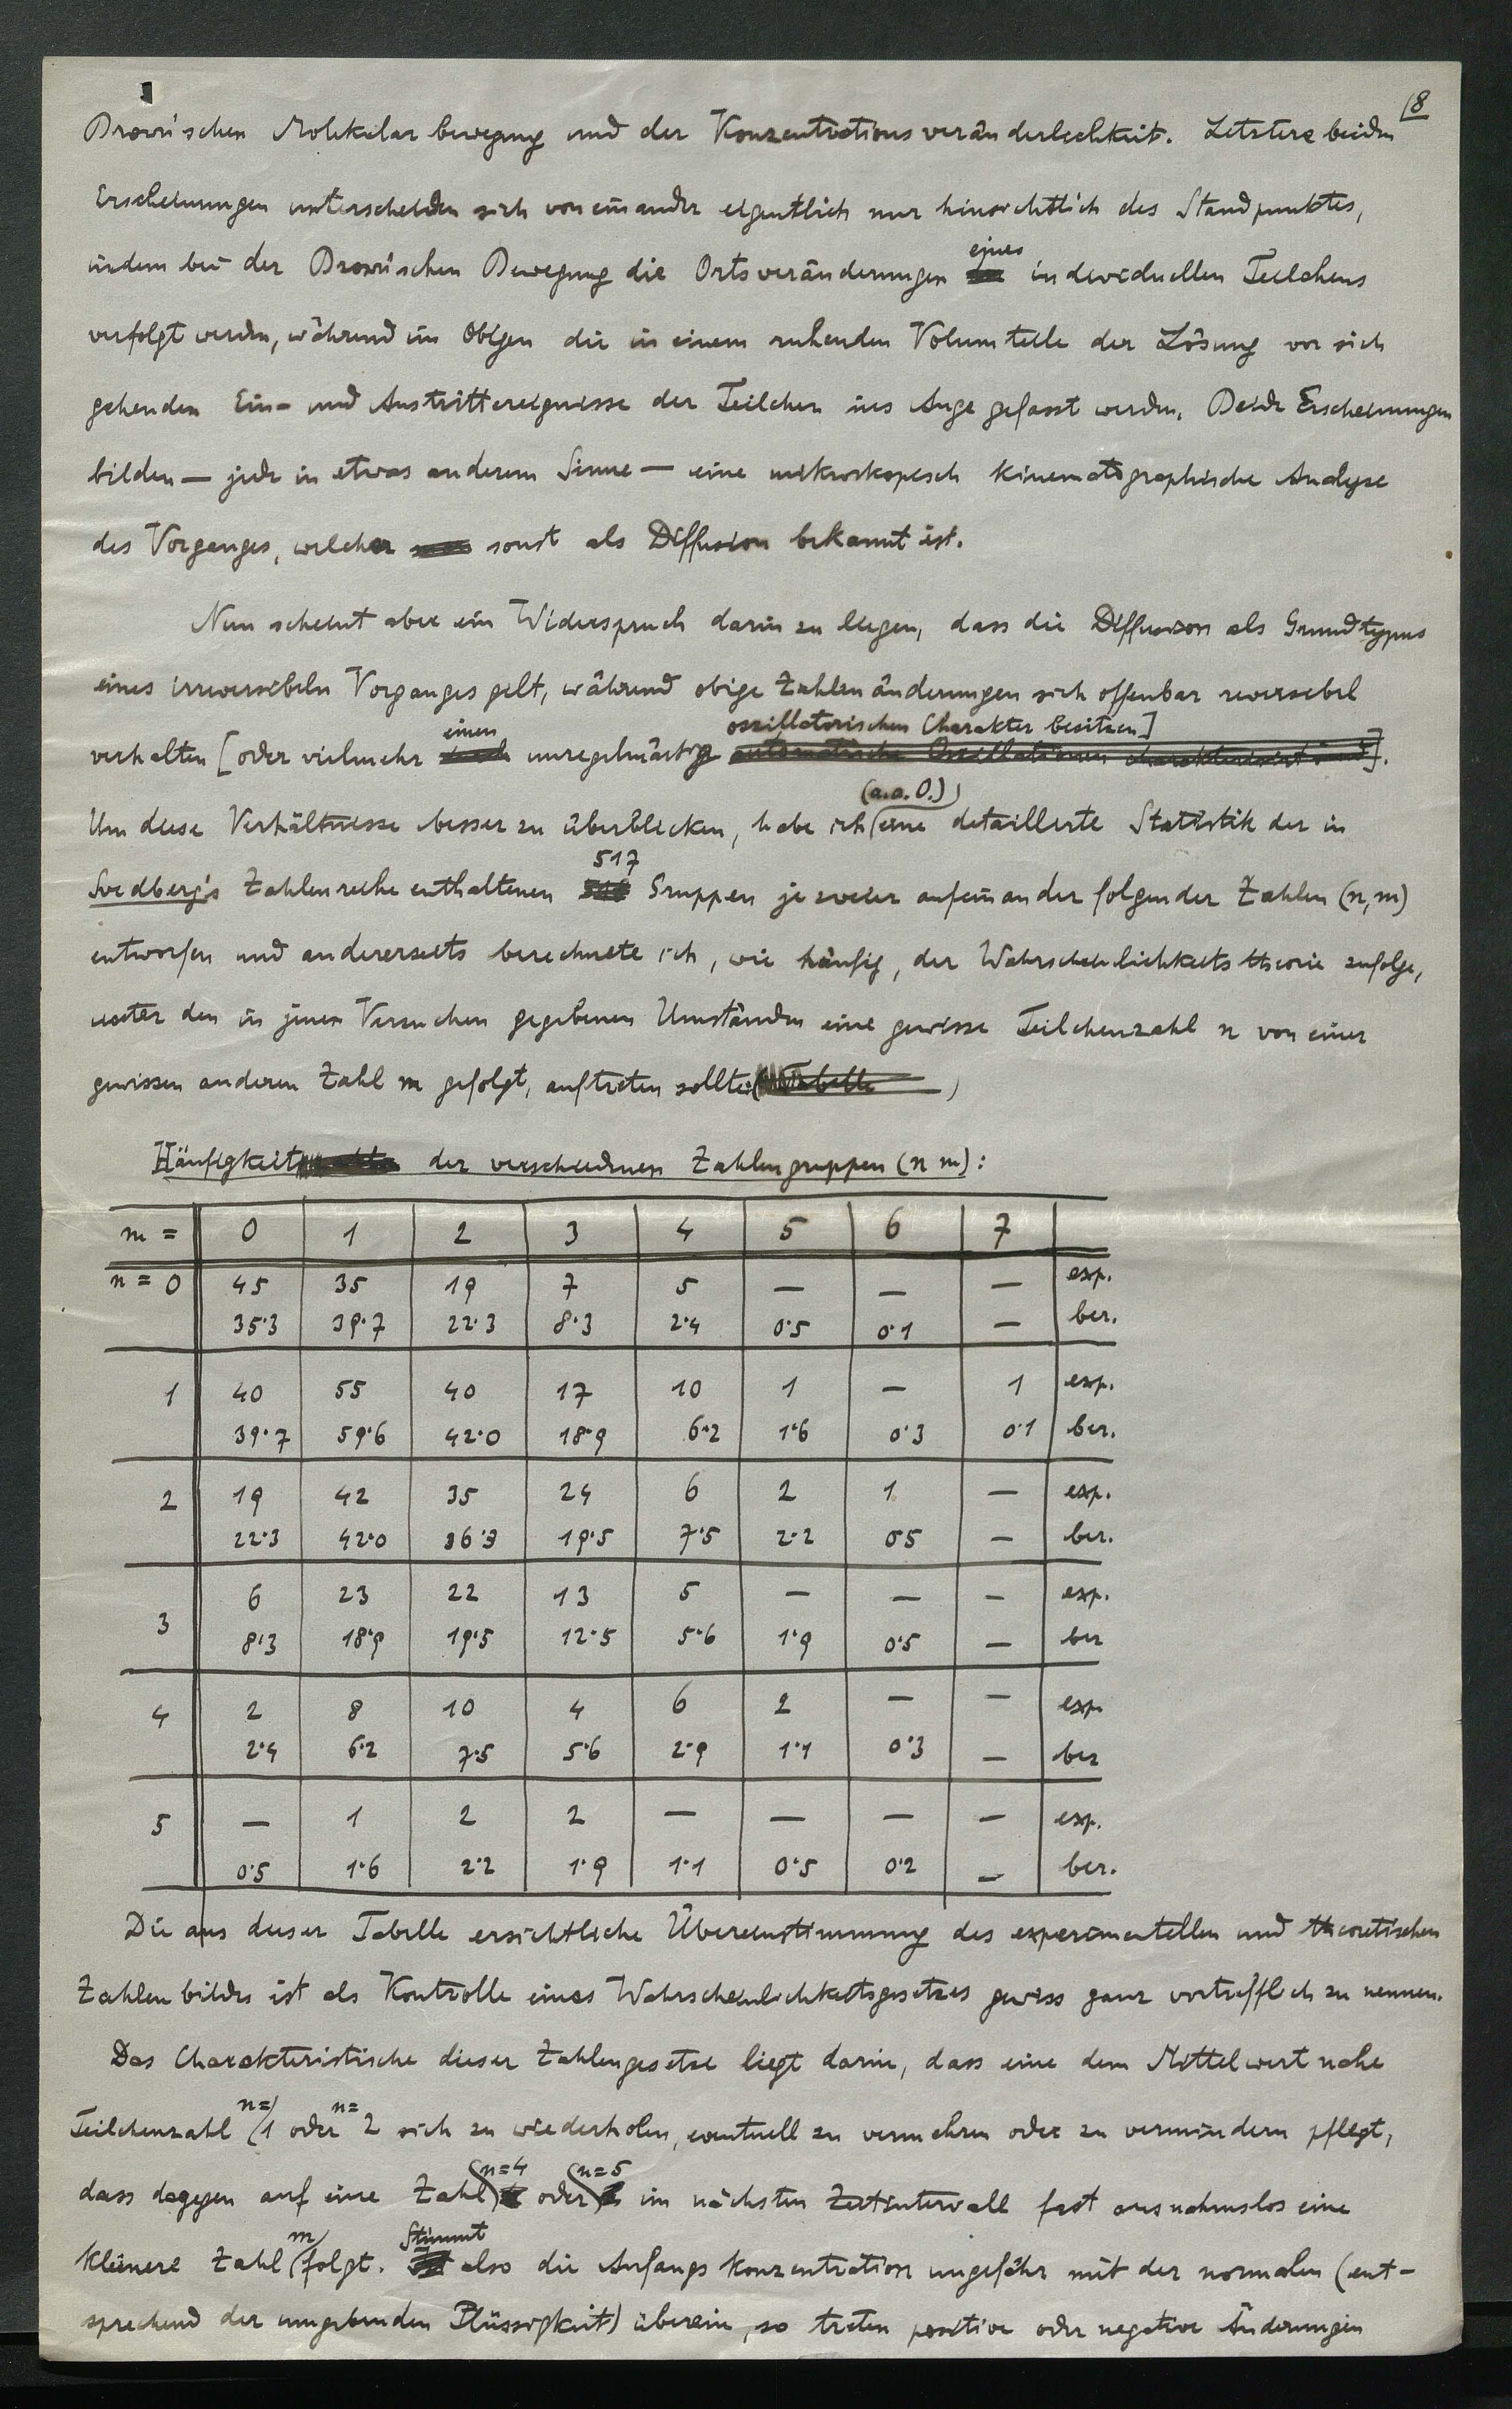 18
Brown'schen Molekularbewegung und der Konzentrationsveränderlichkeit. Letztere beiden
Erscheinungen unterscheiden sich voneinander eigentlich nur hinsichtlich des Standpunktes,
indem bei der Brown'schen Bewegung die Ortsveränderungen eines individuellen Teilchens
verfolgt werden, während im Obigen die in einem ruhenden Volumteile der Lösung vor sich
gehenden Ein- und Austrittereignisse der Teilchen ins Auge gefasst werden. Beide Erscheinungen
bilden — jede in etwas anderem Sinne — eine mikroskopisch kinematographische Analyse
des Vorganges, welcher sonst als Diffusion bekannt ist.
Nun scheint aber ein Widerspruch darin zu liegen, dass die Diffusion als Grundtypus
eines irreversibeln Vorganges gilt, während obige Zahlenänderungen sich offenbar reversibel
verhalten [oder vielmehr einen unregelmässig oszillatorischen Charakter besitzen].
Um diese Verhältnisse besser zu überblicken, habe ich (a.a.O.) eine detaillierte Statistik der in
Svedberg's Zahlenreihe enthaltenen 517 Gruppen je zweier aufeinander folgender Zahlen (n, m)
entworfen und andererseits berechnete ich, wie häufig, der Wahrscheinlichkeitstheorie zufolge,
unter den in jenen Versuchen gegebenen Umständen eine gewisse Teilchenzahl n von einer
gewissen anderen Zahl m gefolgt, auftreten sollte: (Tabelle )
Häufigkeit der verschiedenen Zahlengruppen (n m):
m = 0 1 2 3 4 5 6 7
n = 0 45 35 19 7 5 — — — exp.
35·3 39·7 22·3 8·3 2·4 0·5 0·1 — ber.
1 40 55 40 17 10 1 — 1 exp.
39·7 59·6 42·0 18·9 6·2 1·6 0·3 0·1 ber.
2 19 42 35 24 6 2 1 — exp.
22·3 42·0 36·3 19·5 7·5 2·2 0·5 — ber.
3 6 23 22 13 5 — — — exp.
8·3 18·9 19·5 12·5 5·6 1·9 0·5 — ber
4 2 8 10 4 6 2 — — exp
2·4 6·2 7·5 5·6 2·9 1·1 0·3 — ber
5 — 1 2 2 — — — — exp.
0·5 1·6 2·2 1·9 1·1 0·5 0·2 — ber.
Die aus dieser Tabelle ersichtliche Übereinstimmung des experimentellen und theoretischen
Zahlenbildes ist als Kontrolle eines Wahrscheinlichkeitsgesetzes gewiss ganz vortrefflich zu nennen.
Das Charakteristische dieser Zahlengesetze liegt darin, dass eine dem Mittelwert nahe
Teilchenzahl n=1 oder n=2 sich zu wiederholen, eventuell zu vermehren oder zu vermindern pflegt,
dass dagegen auf eine Zahl n=4 oder n=5 im nächsten Zeitintervall fast ausnahmslos eine
kleinere Zahl m folgt. Stimmt also die Anfangskonzentration ungefähr mit der normalen (ent-
sprechend der umgebenden Flüssigkeit) überein, so treten positive oder negative Änderungen